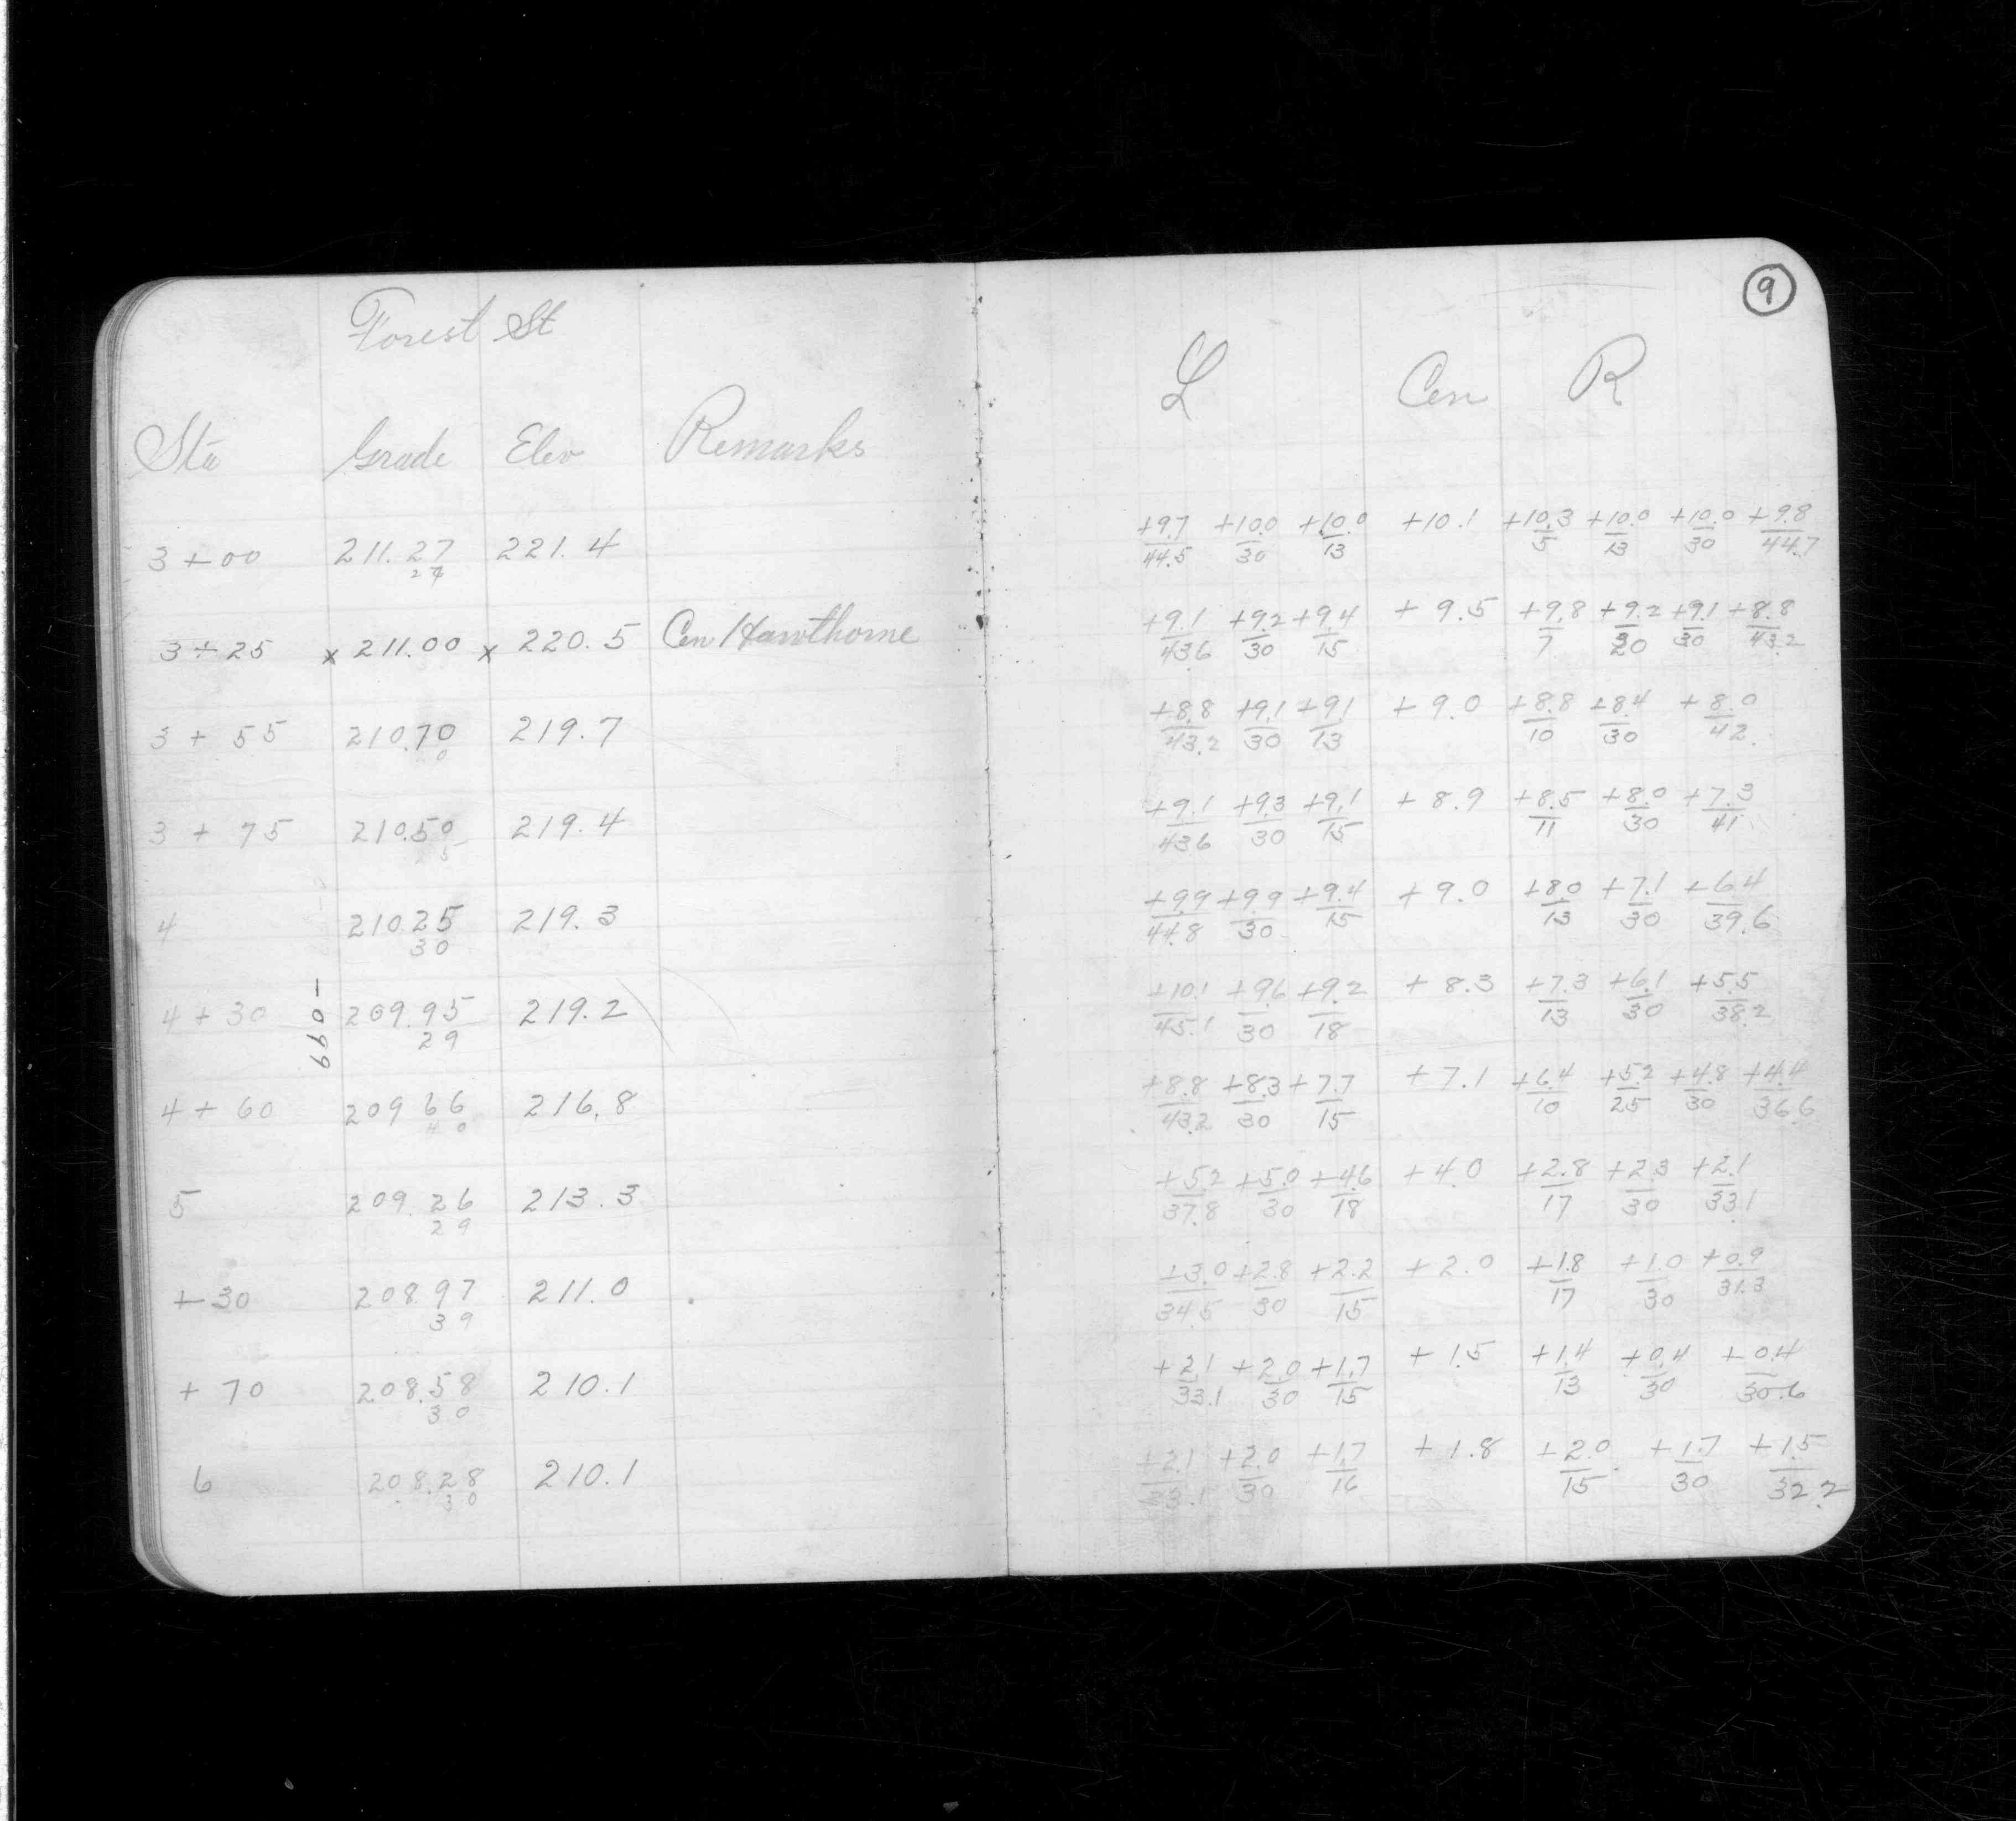 9
Forest St
L Cen R
Sta Grade Elev Remarks
3+00 211.27 221.4 +9.7/44.5 +10.0/30 +10.0/13 +10.1 +10.3/5 +10.0/13 +10.0/30 +9.8/44.7
27
3+25 x 211.00 x 220.5 Cen Hawthorne +9.1/43.6 +9.2/30 +9.4/15 +9.5 +9.8/7 +9.2/20 +9.1/30 +8.8/43.2
3+55 210.70 219.7 +8.8/43.2 +9.1/30 +9.1/13 +9.0 +8.8/10 +8.4/30 +8.0/42
3+75 210.50 219.4 +9.1/43.6 +9.3/30 +9.1/15 +8.9 +8.5/11 +8.0/30 +7.3/41
4 210.25 219.3 +9.9/44.8 +9.9/30 +9.4/15 +9.0 +8.0/13 +7.1/30 +6.4/39.6
30
4+30 209.95 219.2 +10.1/45.1 +9.6/30 +9.2/18 +8.3 +7.3/13 +6.1/30 +5.5/38.2
29
-099
4+60 209.66 216.8 +8.8/43.2 +8.3/30 +7.7/15 +7.1 +6.4/10 +5.2/25 +4.8/30 +4.4/36.6
40
5 209.26 213.3 +5.2/37.8 +5.0/30 +4.6/18 +4.0 +2.8/17 +2.3/30 +2.1/33.1
29
+30 208.97 211.0 +3.0/34.5 +2.8/30 +2.2/15 +2.0 +1.8/17 +1.0/30 +0.9/31.3
39
+70 208.58 210.1 +2.1/33.1 +2.0/30 +1.7/15 +1.5 +1.4/13 +0.4/30 +0.4/30.6
30
6 208.28 210.1 +2.1/33.1 +2.0/30 +1.7/16 +1.8 +2.0/15 +1.7/30 +1.5/32.2
30